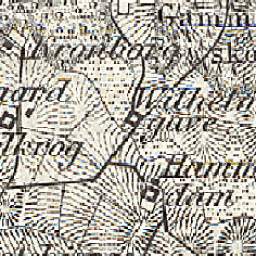 Gamm
Kronborg
sko
aard
Wilhelm
gave
lkrog
Hamm
dam